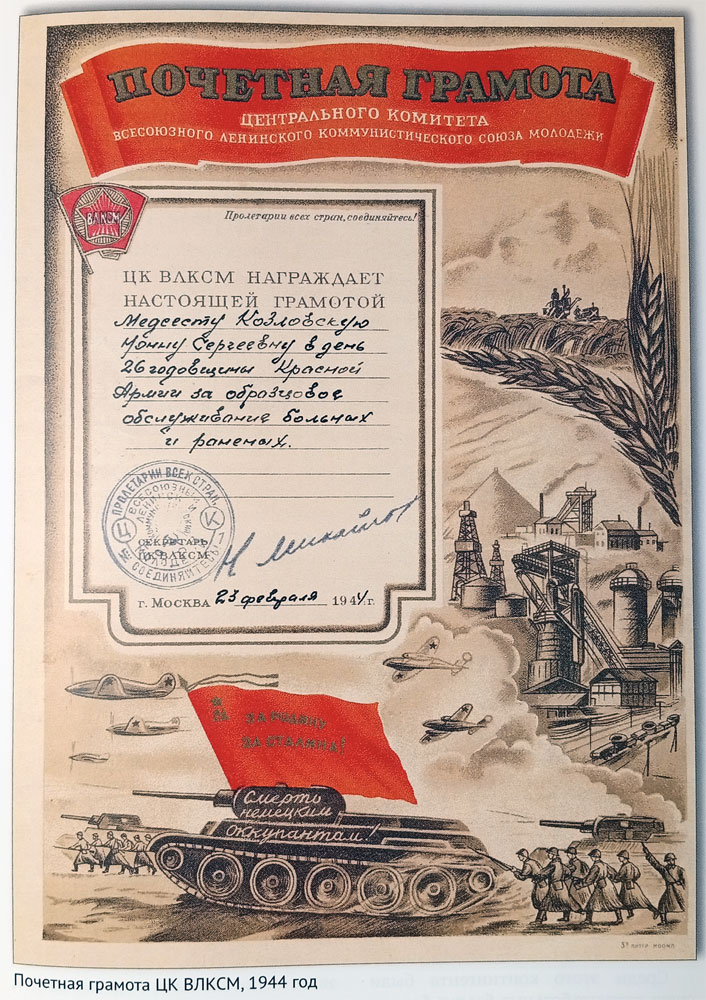 ПОЧЕТНАЯ ГРАМОТА
ЦЕНТРАЛЬНОГО КОМИТЕТА
ВСЕСОЮЗНОГО ЛЕНИНСКОГО КОММУНИСТИЧЕСКОГО СОЮЗА МОЛОДЕЖИ
ВЛКСМ
Пролетарии всех стран, соединяйтесь!
ЦК ВЛКСМ НАГРАЖДАЕТ
НАСТОЯЩЕЙ ГРАМОТОЙ
Медсестру Козловскую
Нонну Сергеевну в день
26 годовщины Красной
Армии за образцовое
обслуживание больных
и раненых.
ПРОЛЕТАРИИ ВСЕХ СТРАН
СОЕДИНЯЙТЕСЬ
ВСЕСОЮЗНЫЙ
ЦК
СЕКРЕТАРЬ
ЦК ВЛКСМ
Н Михайлов
г. МОСКВА 23 февраля 1944 г.
ЗА РОДИНУ
ЗА СТАЛИНА!
Смерть
немецким
оккупантам!
Почетная грамота ЦК ВЛКСМ, 1944 год